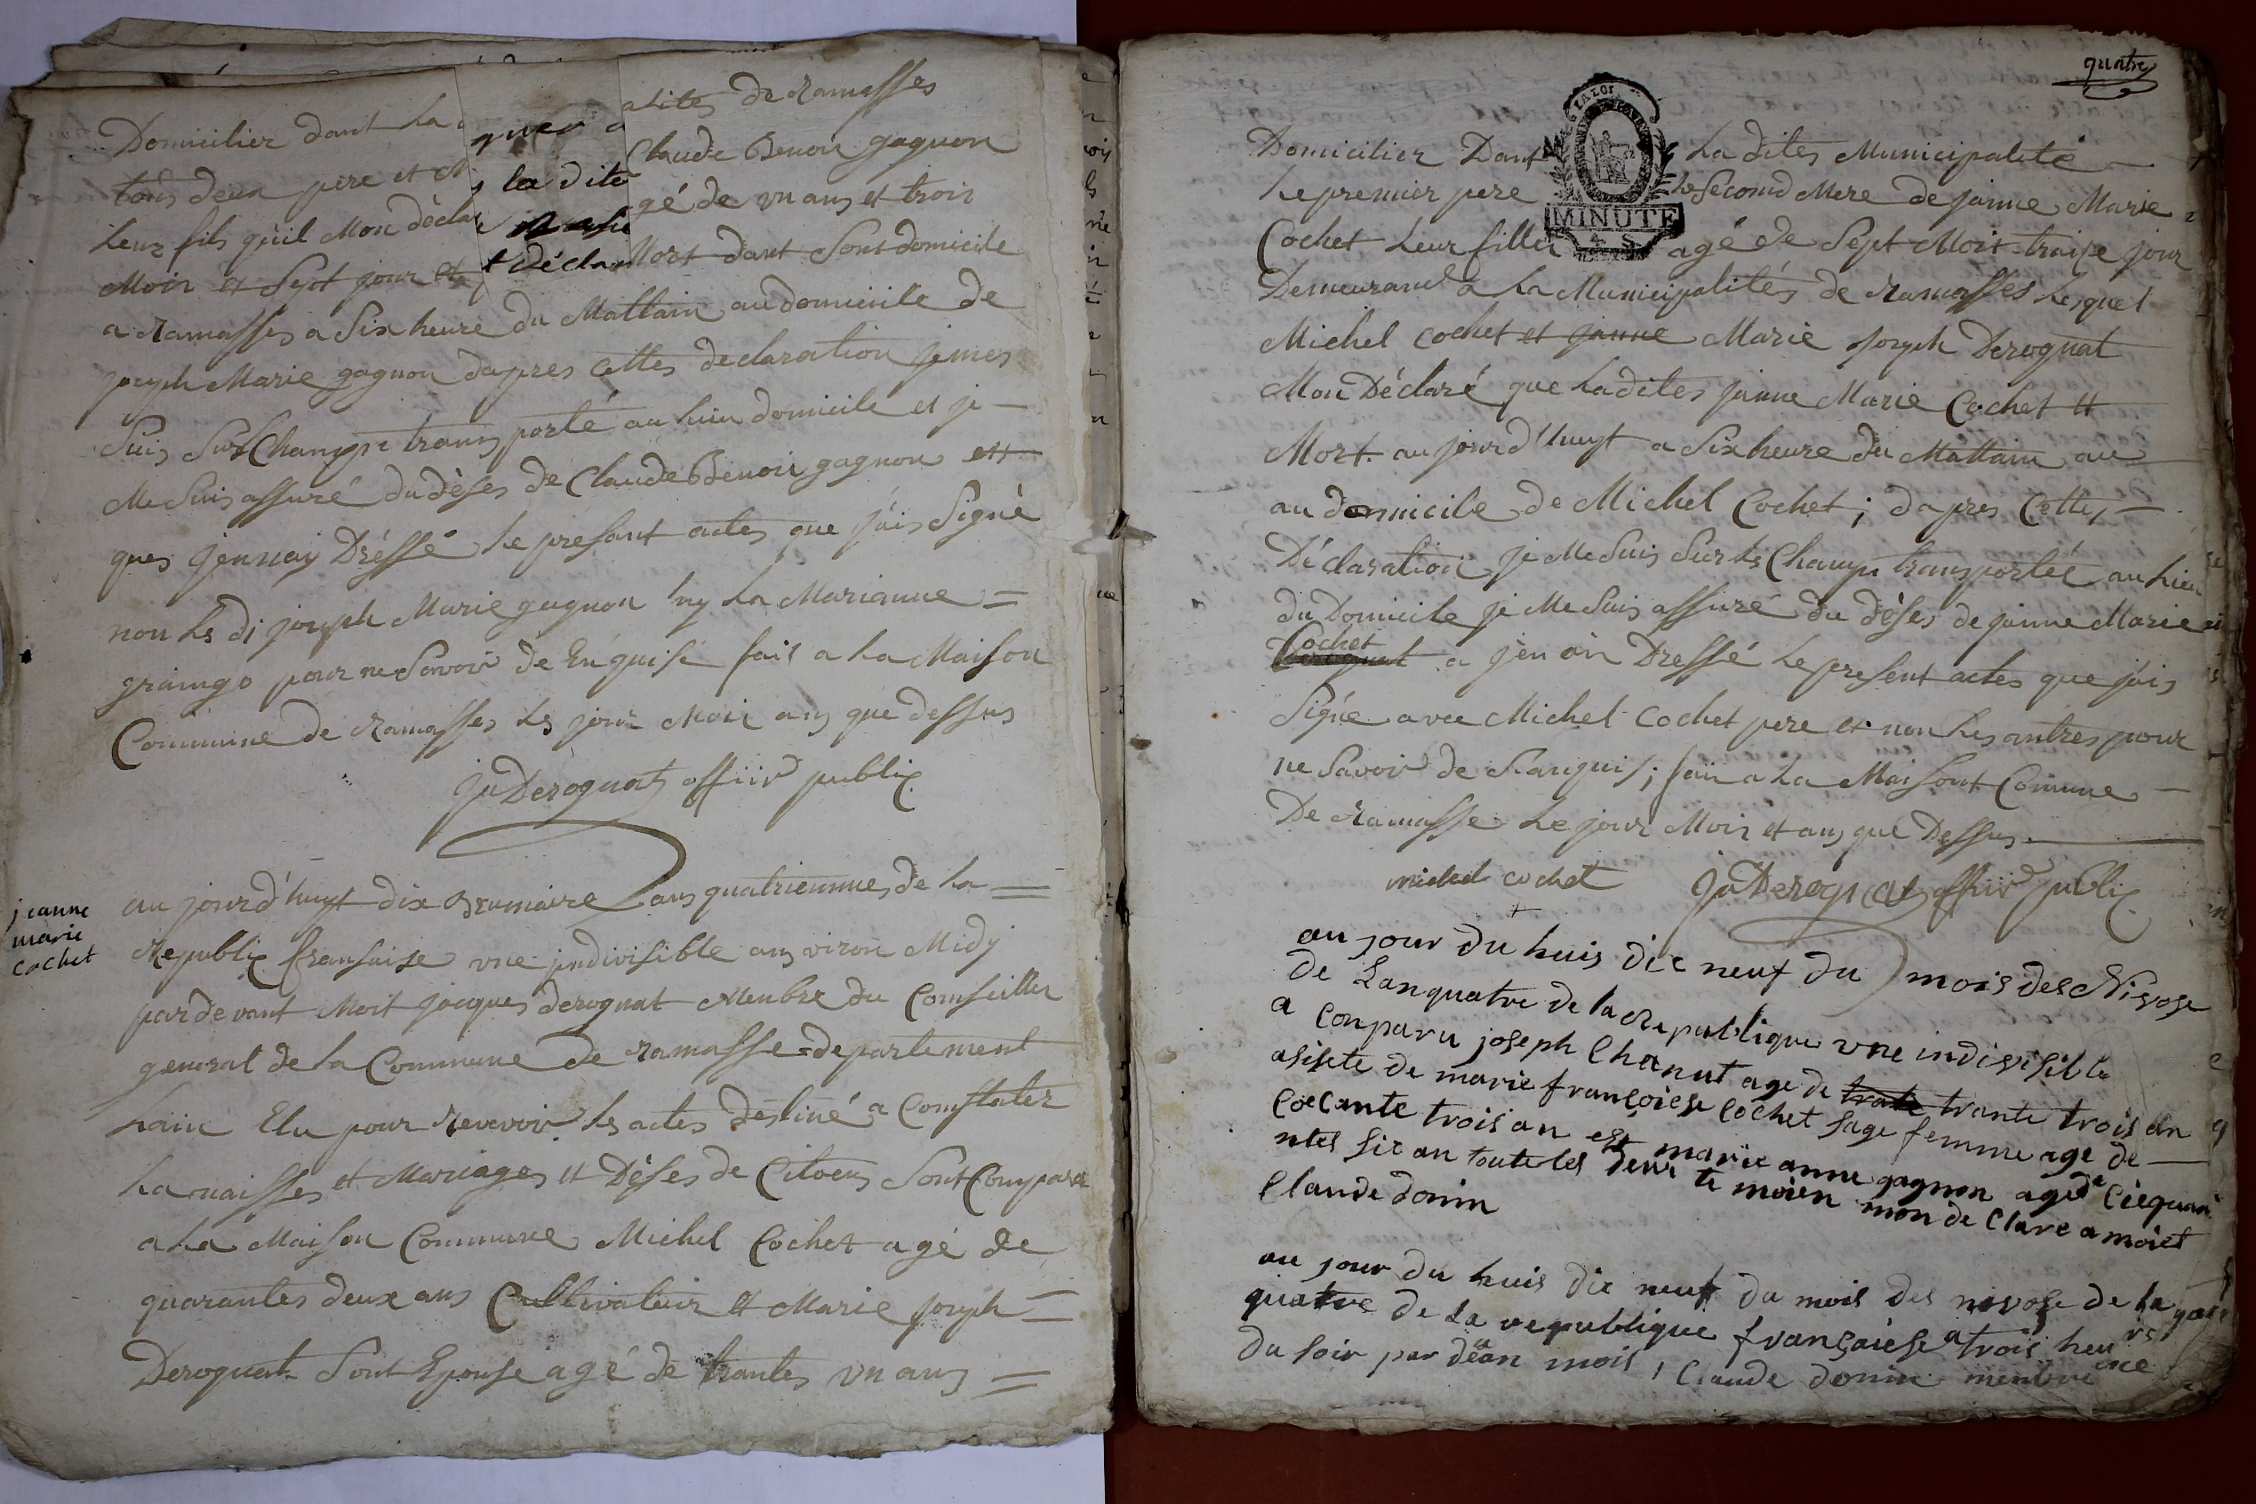 Domicilier dant la
quer a
alites de Ramasses
tous deux pere et
la dite
Claude Benoit gagnon
leur fils quil Mon déclar
agé de un ans et trois
Mois et Sept jour et
t déclar
Mort dant Sont domicile
a Ramasses a Six heure du Mattain au domicile de
joseph Marie gagnon dapres cettes declaration je mes
Suis Sur Champt transporté au lieu domicile et je
Me Suis assuré du dèses de Claude Benoit gagnon et
ques jennay Dréssé le presant actes que jais Signé
non les di joseph Marie gagnon ny la Marianne
graingo pour ne Savoir de Enquise fait a la Maison
Commune de Ramasses les jour Mois ans que dessus
jq Derognat officier public
jeanne
marie
cochet
au jourd'huyt dix Brumaire ans quatriemme, de la
Republiq francaise une indivisible anviron Midj
pardevant Moit jacques derognat Menbre du Comseiller
general de la Commune de Ramasse departement
Lain Elu pour Recevoir les actes destiné a Comstater
La naisses et Mariages et Dèses de Citoens Sont Comparu
a la Maison Commune Michel Cochet agé de
quarantes deux ans Cultivateur et Marie joseph
Derognat Sont Epouse agé de trantes un ans
quatre
Domicilier Dant la dites Municipalité
Le premier pere le Second Mere de janne Marie
Cochet Leur filler agé de Sept Mois traise jour
Demeurand a La Municipalités de Ramasses Lesquel
Michel Cochet et janne Marie joseph Derognat
Mon Déclaré que ladites janne Marie Cochet et
Mort aujourd'huyt a Six heure du Mattain au
au domicile de Michel Cochet; dapres Cettes
Déclaration je Me Suis Sur les Champt transportés au lieu
du Domicile je Me Suis assuré du dèses de janne Marie
Cochet
Derognat a jen ain Dressé le presant actes que jais
Signé avec Michel Cochet pere et non Les autres pour
ne Savoir de Lanquis; fait a La Maisont Comune
De Ramasse Le jour Mois et ans que Dessus
michel cochet jq Derognat officier public
MINUTE
4 S
au jour du huis dix neuf du mois des Nivose
de Lanquatre de la Republique une indivisible
a conparu joseph Chanut age de trante trante trois an
asistte de marie françoiese cochet sage femme age de
coecante trois an est marie anne gagnon age de cicquan
ntes six an toute les deux te moien mon de clare a moiet
Claude donin
au jour du huis dix neuf du mois des nivose de la
quatre de la republique françaiese a trois heures
du soir par dean mois, Claude donin menbre